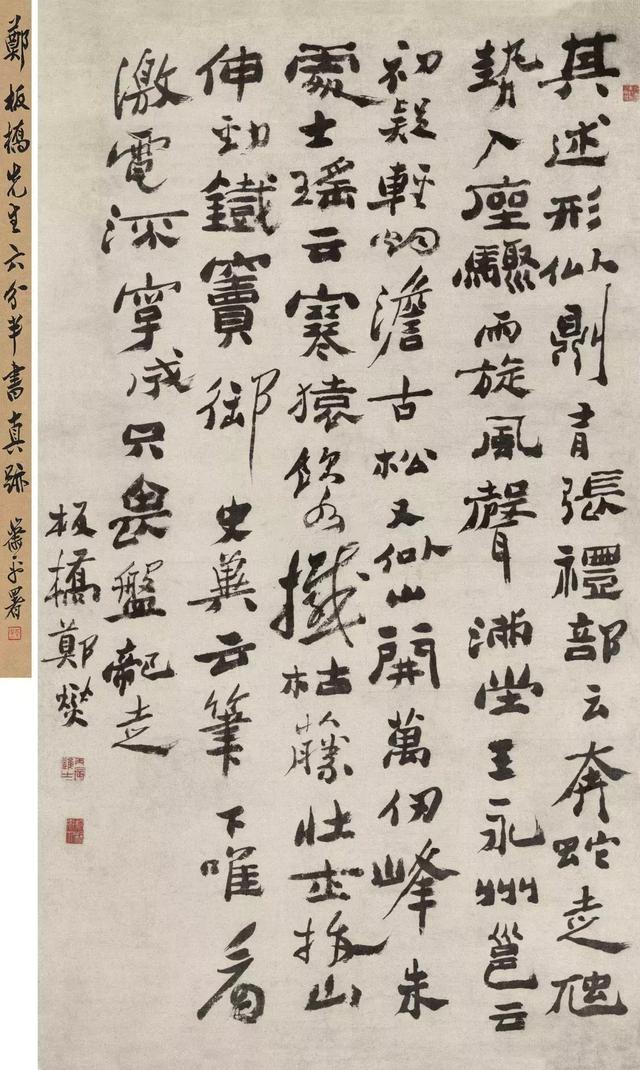 鄭板橋先生六分半書真跡 蕭平署
其述形似則有張禮部云奔蛇走虺
勢入座驟雨旋風聲滿堂王永州邕云
初疑輕烟澹古松又似山開萬仞峰朱
處士瑤云寒猿飲水撼枯藤壯士拔山
伸勁鐵竇御史冀云筆下唯看
激電流字成只畏盤龍走
板橋鄭燮